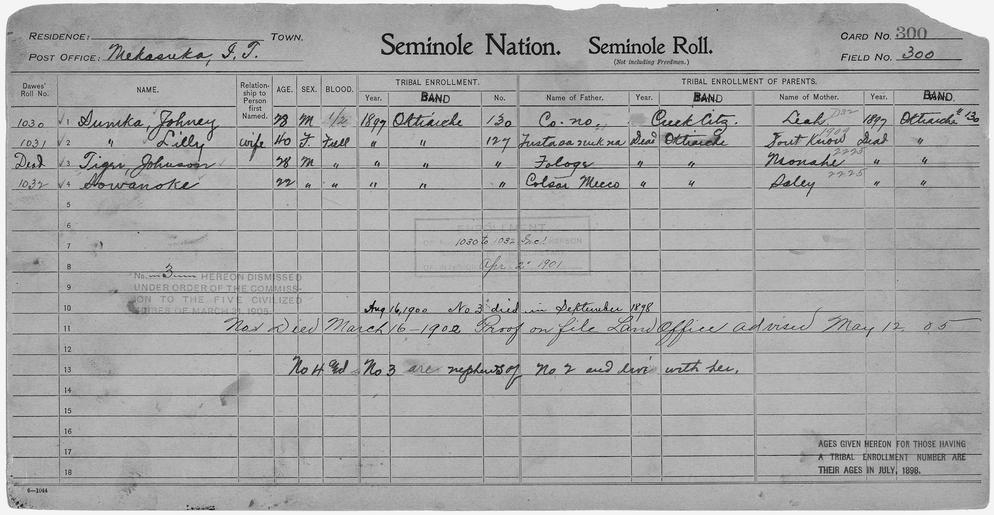 RESIDENCE: TOWN. Seminole Nation. Seminole Roll. CARD NO. 300
POST OFFICE: Mekasuka, I. T. (Not including Freedmen.) FIELD NO. 300
Dawes' Roll No. NAME. Relationship to Person first Named. AGE. SEX. BLOOD. TRIBAL ENROLLMENT. TRIBAL ENROLLMENT OF PARENTS.
Year. BAND No. Name of Father. Year. BAND Name of Mother. Year. BAND
1030 1 Dunika, Johney M 1/2 1897 Ottiaiche 130 Co. no. Creek City. Leah 1897 Ottiaiche 130
1031 2 " Lilly wife 40 F. Full " " 127 Dead Ottiaiche Dont Know Dead "
Died 3 Tiger, Johnson 28 M " " " " Fologe " " " "
1032 4 Sowanoke 22 " " " " " Cotsar Micco " " Saley 2225 " "
5
6
7 1030 to 1032 Incl
8 Apr. 2 1901
No. 3 HEREON DISMISSED
UNDER ORDER OF THE COMMISSION TO THE FIVE CIVILIZED
TRIBES OF MARCH 31, 1905.
9
10 Aug 16, 1900 No 3 died in September 1898
11 No 2 Died March 16 - 1902 Proof on file Land Office advised May 12 05
12
13 No 4 and No 3 are nephews of No 2 and live with her.
14
15
16
17
18
AGES GIVEN HEREON FOR THOSE HAVING
A TRIBAL ENROLLMENT NUMBER ARE
THEIR AGES IN JULY, 1898.
6-1044